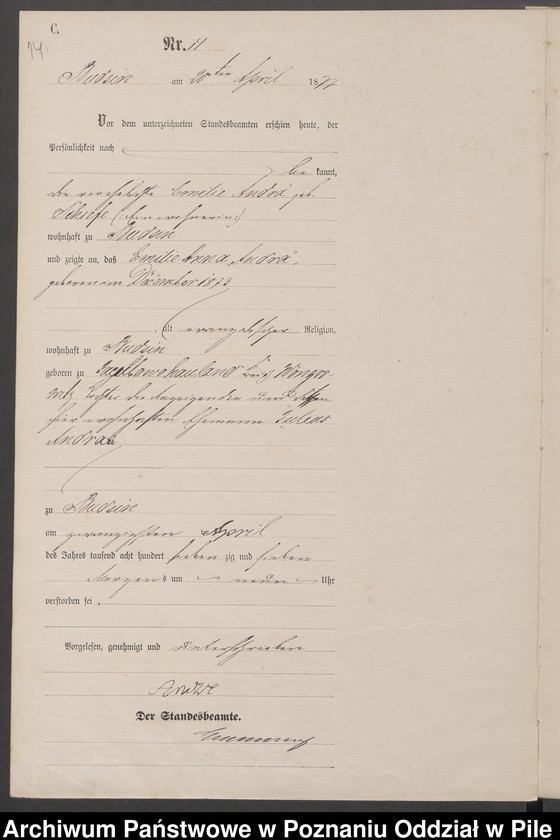 C.
14.
Nr.
Budsin am 20ten April 1877
Vor dem unterzeichneten Standesbeamten erschien heute, der
Persönlichkeit nach
be kannt,
die verehelichte Emilie Andrä geb.
wohnhaft zu Budsin
und zeigte an, daß Emilie Anna Andrä,
geboren im Dezember 1873
, alt evangelischer Religion,
wohnhaft zu Budsin
geboren zu Kreis Wongro-
witz, Tochter der Anzeigenden und dessen
hier wohnhaften Ehemann Julius
Andrae
zu Budsin
am zwanzigsten April
des Jahres tausend acht hundert sieben zig und sieben
Morgens um neun Uhr
verstorben sei.
Vorgelesen, genehmigt und unterschrieben
Der Standesbeamte.
Archiwum Państwowe w Poznaniu Oddział w Pile